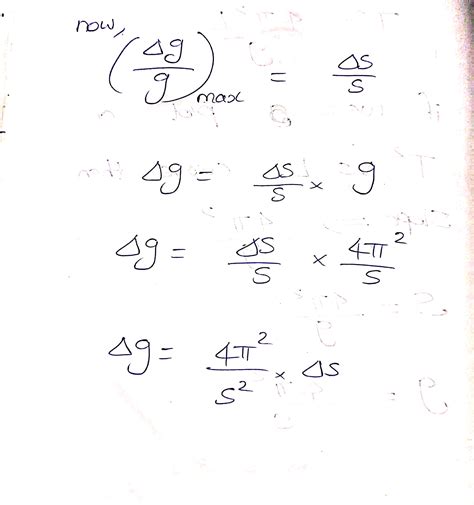 now,
(Δg/g)max = ΔS/S
Δg = ΔS/S × g
Δg = ΔS/S × 4π²/S
Δg = 4π²/S² × ΔS